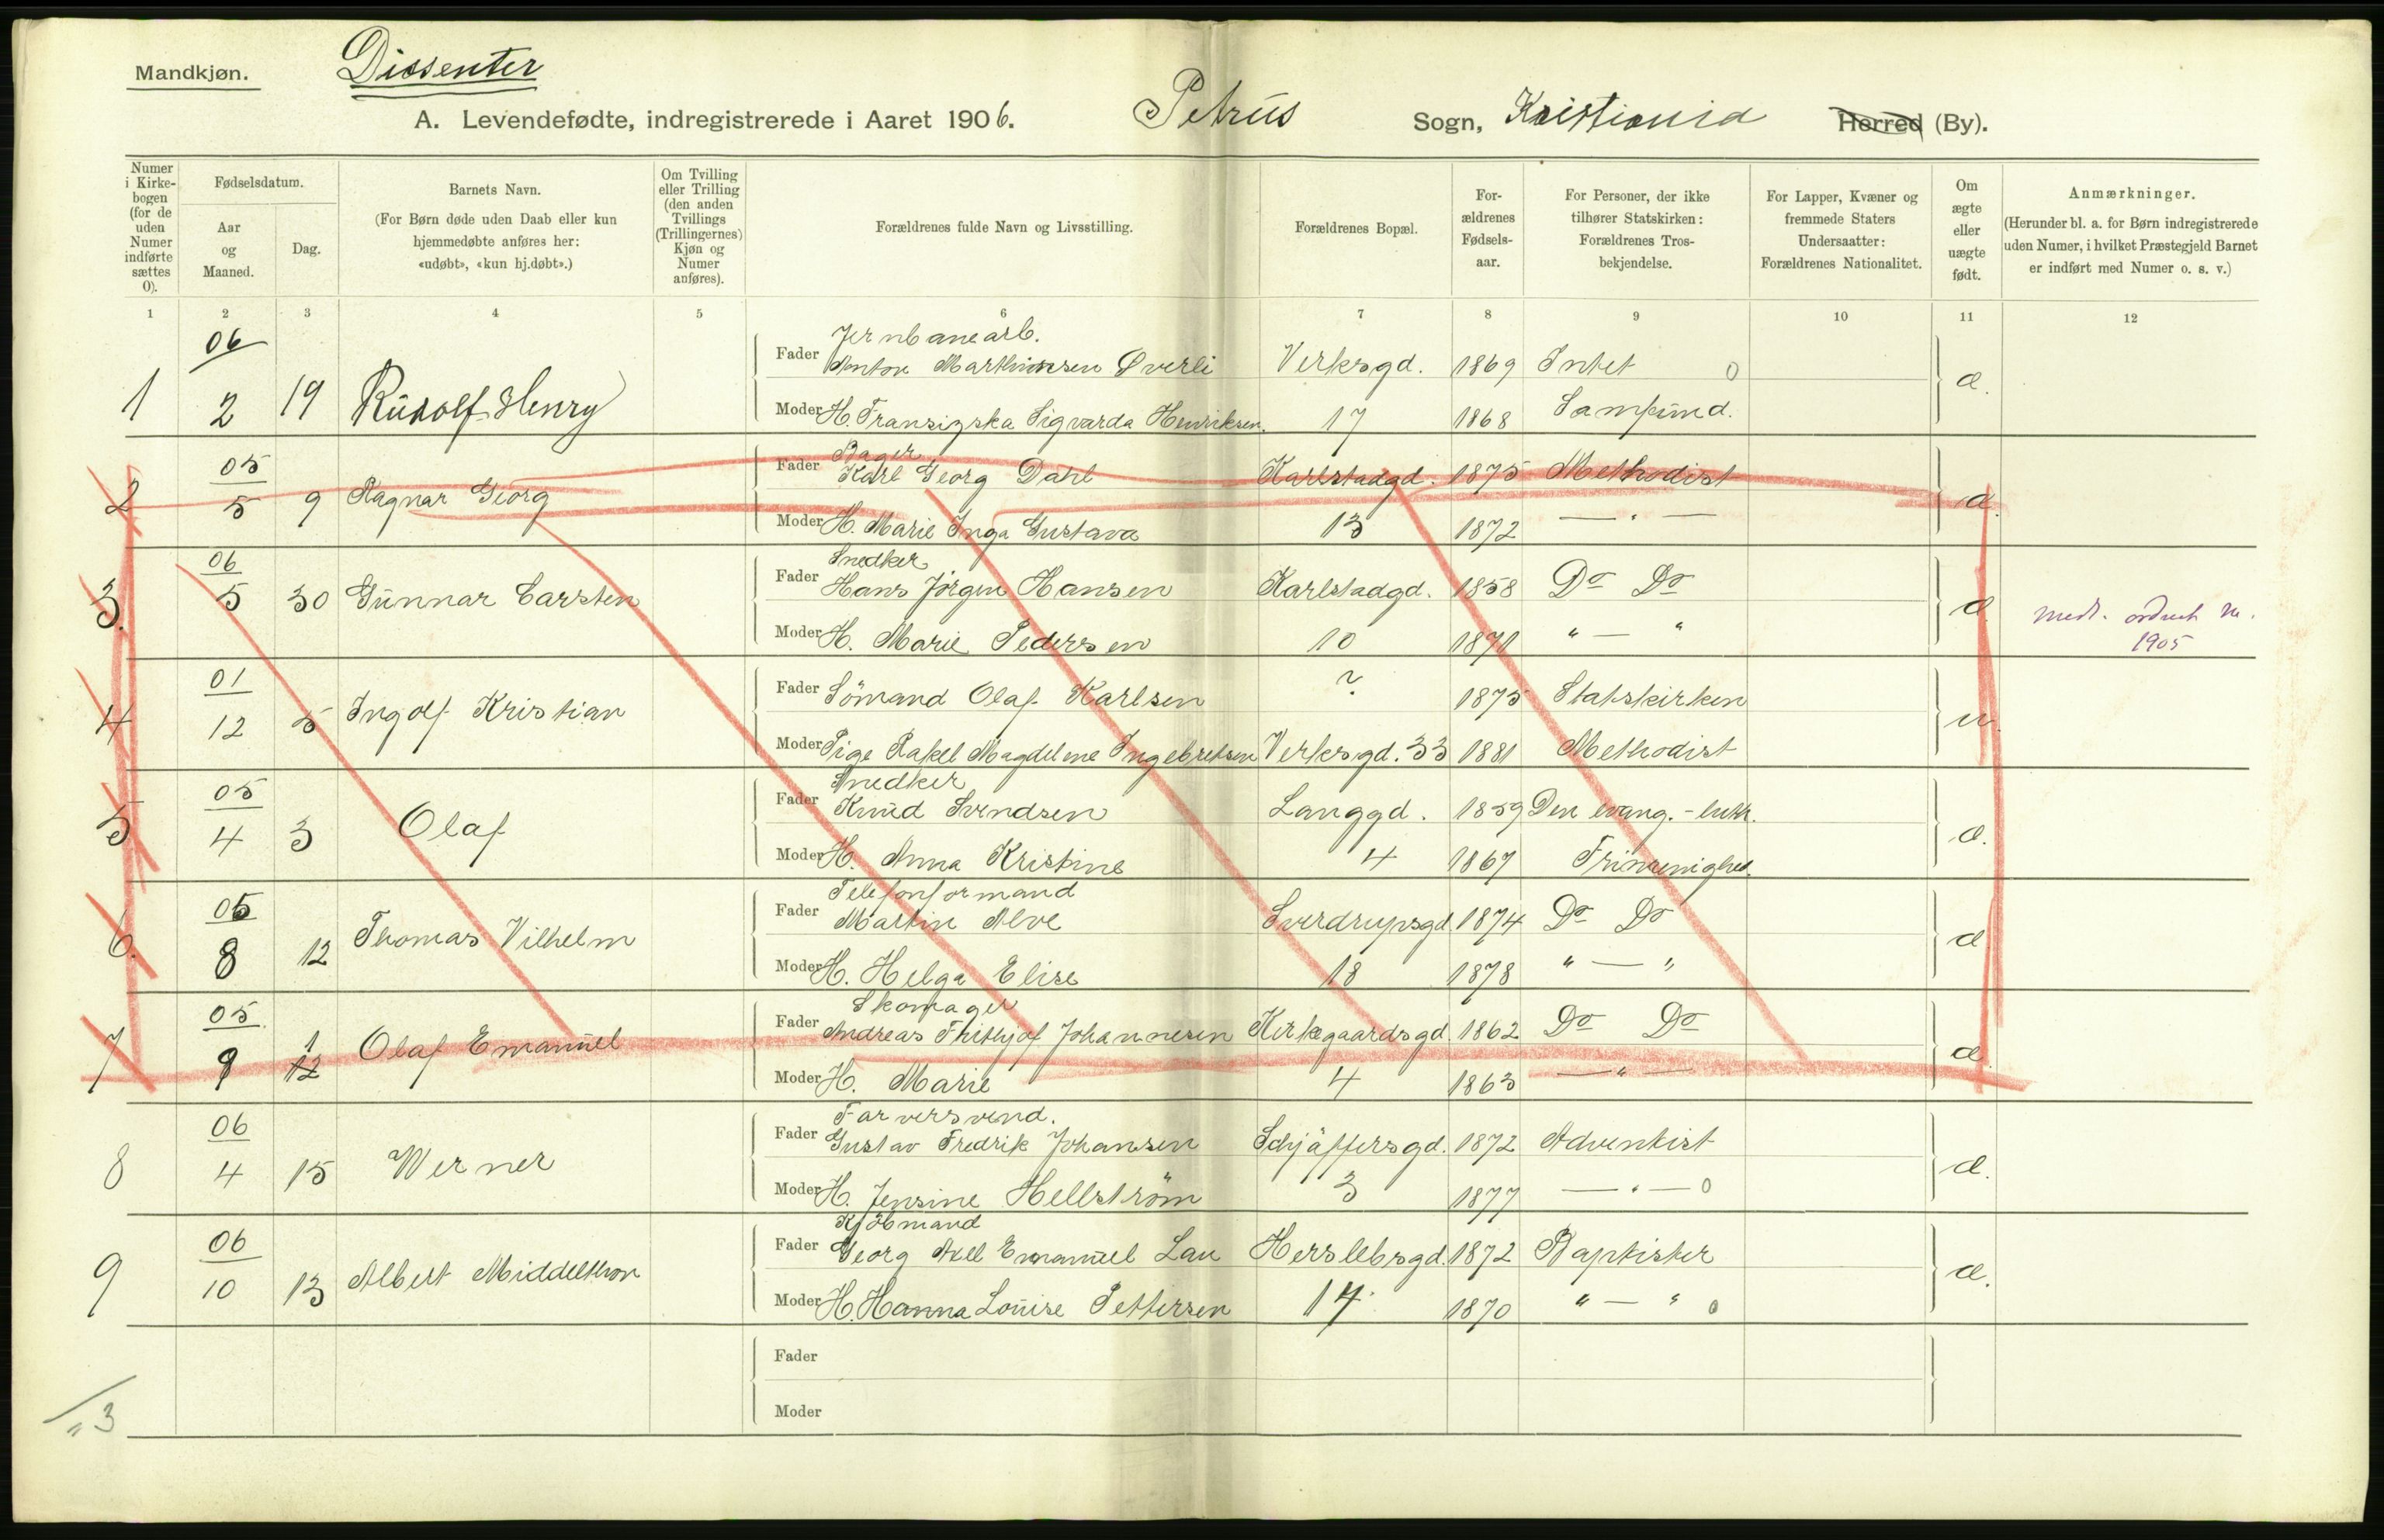 Mandkjøn.
Dissenter
A. Levendefødte, indregistrerede i Aaret 1906.
Petrus Sogn, Kristiania Herred (By).
Numer i Kirkebogen (for de uden Numer indførte sættes 0).
Fødselsdatum.
Aar og Maaned.
Dag.
Barnets Navn.
(For Børn døde uden Daab eller kun hjemmedøbte anføres her: «udøbt», «kun hj.døbt».)
Om Tvilling eller Trilling (den anden Tvillings (Trillingernes) Kjøn og Numer anføres).
Forældrenes fulde Navn og Livsstilling.
Forældrenes Bopæl.
Forældrenes Fødselsaar.
For Personer, der ikke tilhører Statskirken: Forældrenes Trosbekjendelse.
For Lapper, Kvæner og fremmede Staters Undersaatter: Forældrenes Nationalitet.
Om ægte eller uægte født.
Anmærkninger.
(Herunder bl. a. for Børn indregistrerede uden Numer, i hvilket Præstegjeld Barnet er indført med Numer o. s. v.)
1 2 3 4 5 6 7 8 9 10 11 12
06
Jernbanearb.
Fader Anton Marthinsen Øverli Verksgd. 1869 Intet 0
1 2 19 Rudolf Henry æ.
Moder H. Fransiska Sigvarda Henriksen. 17 1868 Samfund.
05
Bager
Fader Karl Georg Dahl Karlstadgd. 1875 Methodist
2 5 9 Ragnar Georg æ.
Moder H. Marie Inga Gustava 13 1872 — " —
06
Snedker
Fader Hans Jörgen Hansen Karlstadgd. 1858 Do Do
3. 5 30 Gunnar Carsten æ medt. 1905
Moder H. Marie Pedersen 10 1871 " — "
01
Fader Sömand Olaf Karlsen ? 1875 Statskirken
4 12 5 Ingolf Kristian u
Moder Pige Rakel Magdelene Ingebretsen Verksgd. 33 1881 Methodist
05
Snedker
Fader Knud Svendsen Langgd. 1859 Den evang.-luth.
5 4 3 Olaf æ.
Moder H. Anna Kristine 4 1867 Frimenighed.
05
Telefonformand
Fader Martin Alve Sverdrupsgd. 1874 Do Do
6. 8 12 Thomas Vilhelm æ
Moder H. Helga Elise 18 1878 " — "
05
Skomager
Fader Andreas Frithjof Johannesen Kirkegaardsgd. 1862 Do Do
7 9 1 12 Olaf Emanuel æ
Moder H. Marie 4 1863 — " —
06
Farversvend.
Fader Gustav Fredrik Johansen Schjäffersgd. 1872 Adventist
8 4 15 Werner æ.
Moder H. Jensine Hellström 3 1877 — " — 0
06
Kjöbmand
Fader Georg Axel Emanuel Lau Herslebsgd. 1872 Baptister
9 10 13 Albert Middelthon æ.
Moder H. Hanna Louise Pettersen 14 1870 " — " 0
Fader
Moder
3